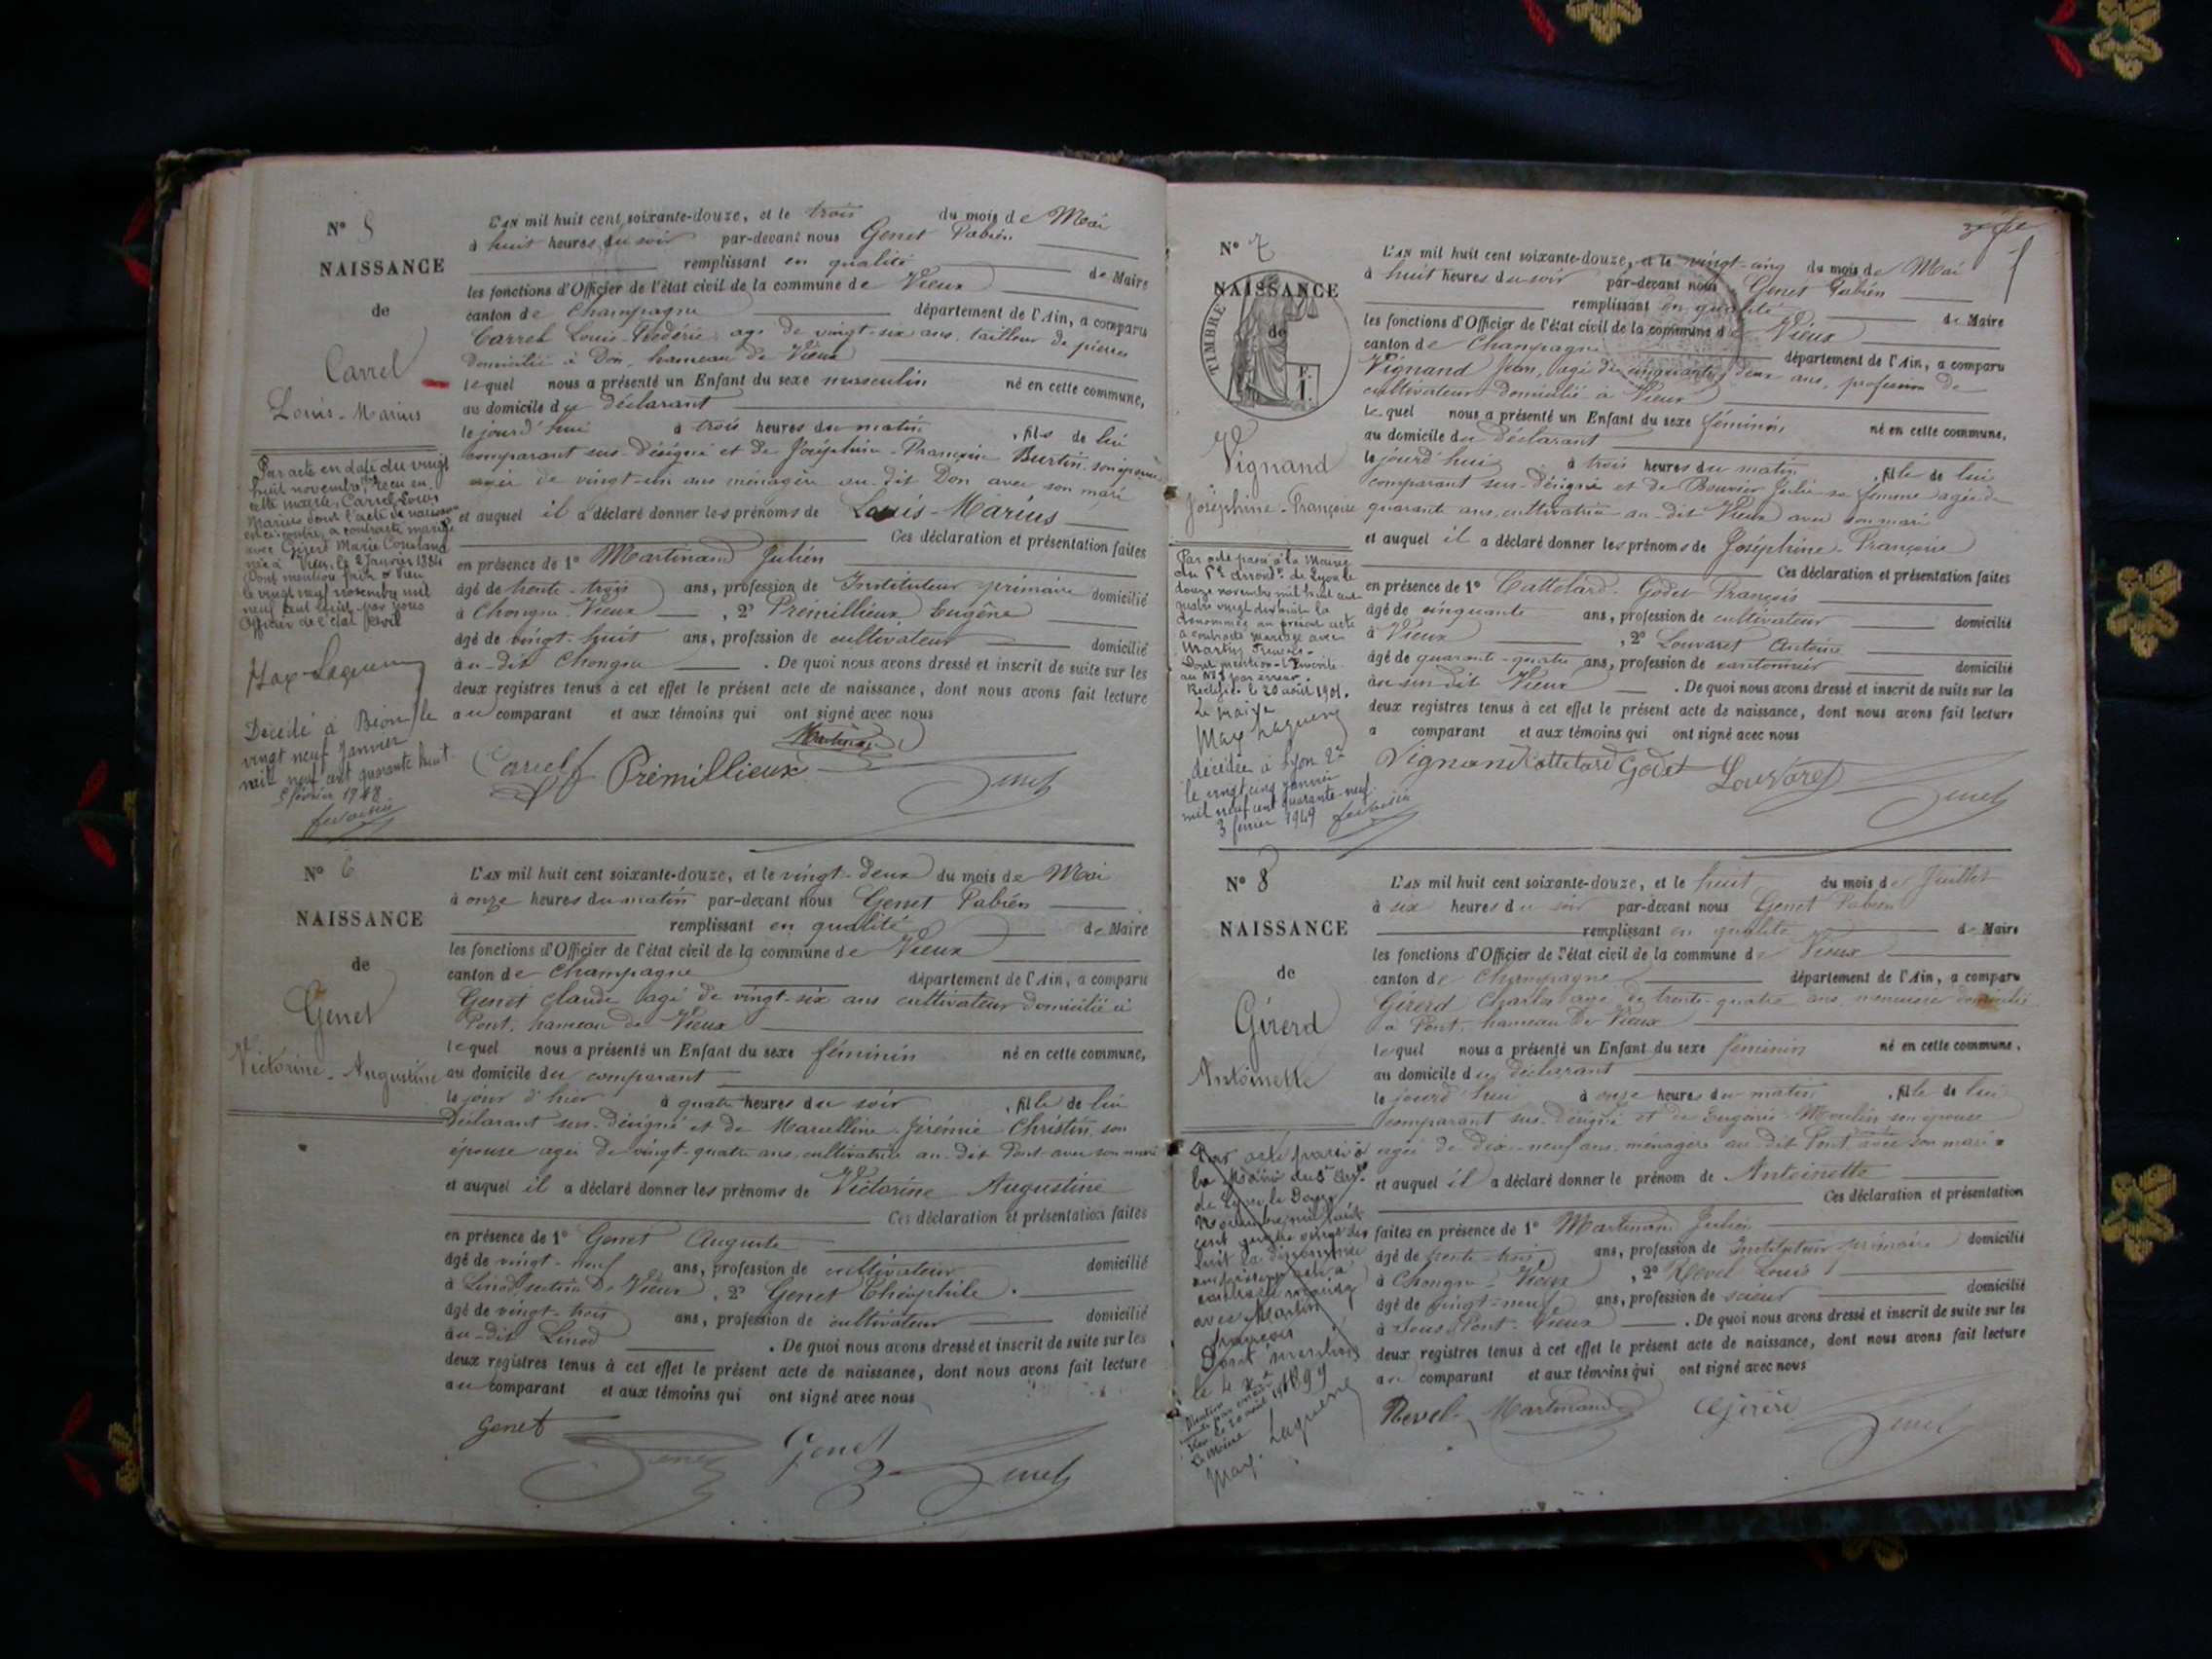 N° 5
NAISSANCE
de
Carrel
Louis-Marius
Par acte en date du vingt
huit novembre, reçu en
cette mairie, Carrel Louis
Marius dont l'acte de naissance
est ci-contre a contracté mariage
avec Girerd Marie
née à Vieu, le 2 Janvier 1884
Dont mention faite à Vieu
le vingt neuf novembre mil
neuf cent huit par nous
Officier de l'état civil
Décédé à Béon le
vingt neuf Janvier
mil neuf cent quarante huit.
février 1948
L'AN mil huit cent soixante-douze, et le trois du mois de Mai
à huit heures du soir par-devant nous Genet Fabien
remplissant en qualité de Maire
les fonctions d'Officier de l'état civil de la commune de Vieux
canton de Champagne département de l'Ain, a comparu
Carrel Louis-Frédéric âgé de vingt-six ans, tailleur de pierres
domicilié à Don, hameau de Vieux
lequel nous a présenté un Enfant du sexe masculin né en cette commune,
au domicile du déclarant
le jourd'hui à trois heures du matin, fils de lui
comparant sus-désigné et de Joséphine-Françoise Burtin, son épouse
âgée de vingt-un ans ménagère au-dit Don avec son mari
et auquel il a déclaré donner les prénoms de Louis-Marius
Ces déclaration et présentation faites
en présence de 1° Martinand Julien
âgé de trente-trois ans, profession de Instituteur primaire domicilié
à Chongne-Vieux, 2° Prémillieux Eugène
âgé de vingt-huit ans, profession de cultivateur domicilié
au-dit Chongne. De quoi nous avons dressé et inscrit de suite sur les
deux registres tenus à cet effet le présent acte de naissance, dont nous avons fait lecture
au comparant et aux témoins qui ont signé avec nous
Martinand
Carrel Prémillieux Genet
N° 6
NAISSANCE
de
Genet
Victorine-Augustine
L'AN mil huit cent soixante-douze, et le vingt-deux du mois de Mai
à onze heures du matin par-devant nous Genet Fabien
remplissant en qualité de Maire
les fonctions d'Officier de l'état civil de la commune de Vieux
canton de Champagne département de l'Ain, a comparu
Genet Claude âgé de vingt-six ans cultivateur domicilié à
Pont, hameau de Vieux
lequel nous a présenté un Enfant du sexe féminin né en cette commune,
au domicile du comparant
le jour d'hier à quatre heures du soir, fille de lui
Déclarant sus-désigné et de Marcelline-Jérémie Christin, son
épouse âgée de vingt-quatre ans, cultivatrice au-dit Pont avec son mari
et auquel il a déclaré donner les prénoms de Victorine Augustine
Ces déclaration et présentation faites
en présence de 1° Genet Auguste
âgé de vingt-neuf ans, profession de cultivateur domicilié
à Linod, section de Vieux, 2° Genet Théophile.
âgé de vingt-trois ans, profession de cultivateur domicilié
au-dit Linod. De quoi nous avons dressé et inscrit de suite sur les
deux registres tenus à cet effet le présent acte de naissance, dont nous avons fait lecture
au comparant et aux témoins qui ont signé avec nous
Genet Genet Genet Genet
N° 7
NAISSANCE
de
TIMBRE
F.
1.
Vignand
Joséphine-Françoise
Par acte passé à la Mairie
du 5e arrondt de Lyon le
douze novembre mil huit cent
quatre vingt dix huit la
dénommée au présent acte
a contracté mariage avec
Martin François.
Dont mention inscrite
au N° 8 par erreur.
Rectifié le 20 août 1901.
Le Maire
décédée à Lyon 2e
le vingt cinq janvier
mil neuf cent quarante-neuf.
3 février 1949
L'AN mil huit cent soixante-douze, et le vingt-cinq du mois de Mai
à huit heures du soir par-devant nous Genet Fabien
remplissant en qualité de Maire
les fonctions d'Officier de l'état civil de la commune de Vieux
canton de Champagne département de l'Ain, a comparu
Vignand Jean, âgé de cinquante-deux ans, profession de
cultivateur domicilié à Vieux
lequel nous a présenté un Enfant du sexe féminin né en cette commune,
au domicile du déclarant
le jourd'hui à trois heures du matin, fille de lui
comparant sus-désigné et de Bouvier Julie sa femme âgée de
quarante ans, cultivatrice au-dit Vieux avec son mari
et auquel il a déclaré donner les prénoms de Joséphine-Françoise
Ces déclaration et présentation faites
en présence de 1° Cattelard-Godet François
âgé de cinquante ans, profession de cultivateur domicilié
à Vieux, 2° Louvaret Antoine
âgé de quarante-quatre ans, profession de cantonnier domicilié
Vieux. De quoi nous avons dressé et inscrit de suite sur les
deux registres tenus à cet effet le présent acte de naissance, dont nous avons fait lecture
a comparant et aux témoins qui ont signé avec nous
Vignand Cattelard Godet Louvaret Genet
N° 8
NAISSANCE
de
Girerd
Antoinette
Par acte passé à
la Mairie du 5e Arrt
de Lyon le Douze
Novembre mil huit
cent quatre vingt dix
huit la dénommée
au présent acte a
contracté mariage
avec Martin
François
Dont mention
le 4 1899
L'AN mil huit cent soixante-douze, et le huit du mois de Juillet
à six heures du soir par-devant nous Genet Fabien
remplissant en qualité de Maire
les fonctions d'Officier de l'état civil de la commune de Vieux
canton de Champagne département de l'Ain, a comparu
Girerd Charles âgé de trente-quatre ans, menuisier domicilié
à Pont, hameau de Vieux
lequel nous a présenté un Enfant du sexe féminin né en cette commune,
au domicile du déclarant
le jourd'hui à onze heures du matin, fille de lui
comparant sus-désigné et de Eugénie Moulin son épouse
âgée de dix-neuf ans, ménagère au-dit Pont avec son mari
et auquel il a déclaré donner le prénom de Antoinette
Ces déclaration et présentation
faites en présence de 1° Martinand Julien
âgé de trente-trois ans, profession de Instituteur primaire domicilié
à Chongne-Vieux, 2° Revel Louis
âgé de vingt-neuf ans, profession de scieur domicilié
à Sous-Pont-Vieux. De quoi nous avons dressé et inscrit de suite sur les
deux registres tenus à cet effet le présent acte de naissance, dont nous avons fait lecture
au comparant et aux témoins qui ont signé avec nous
Revel Martinand Genet